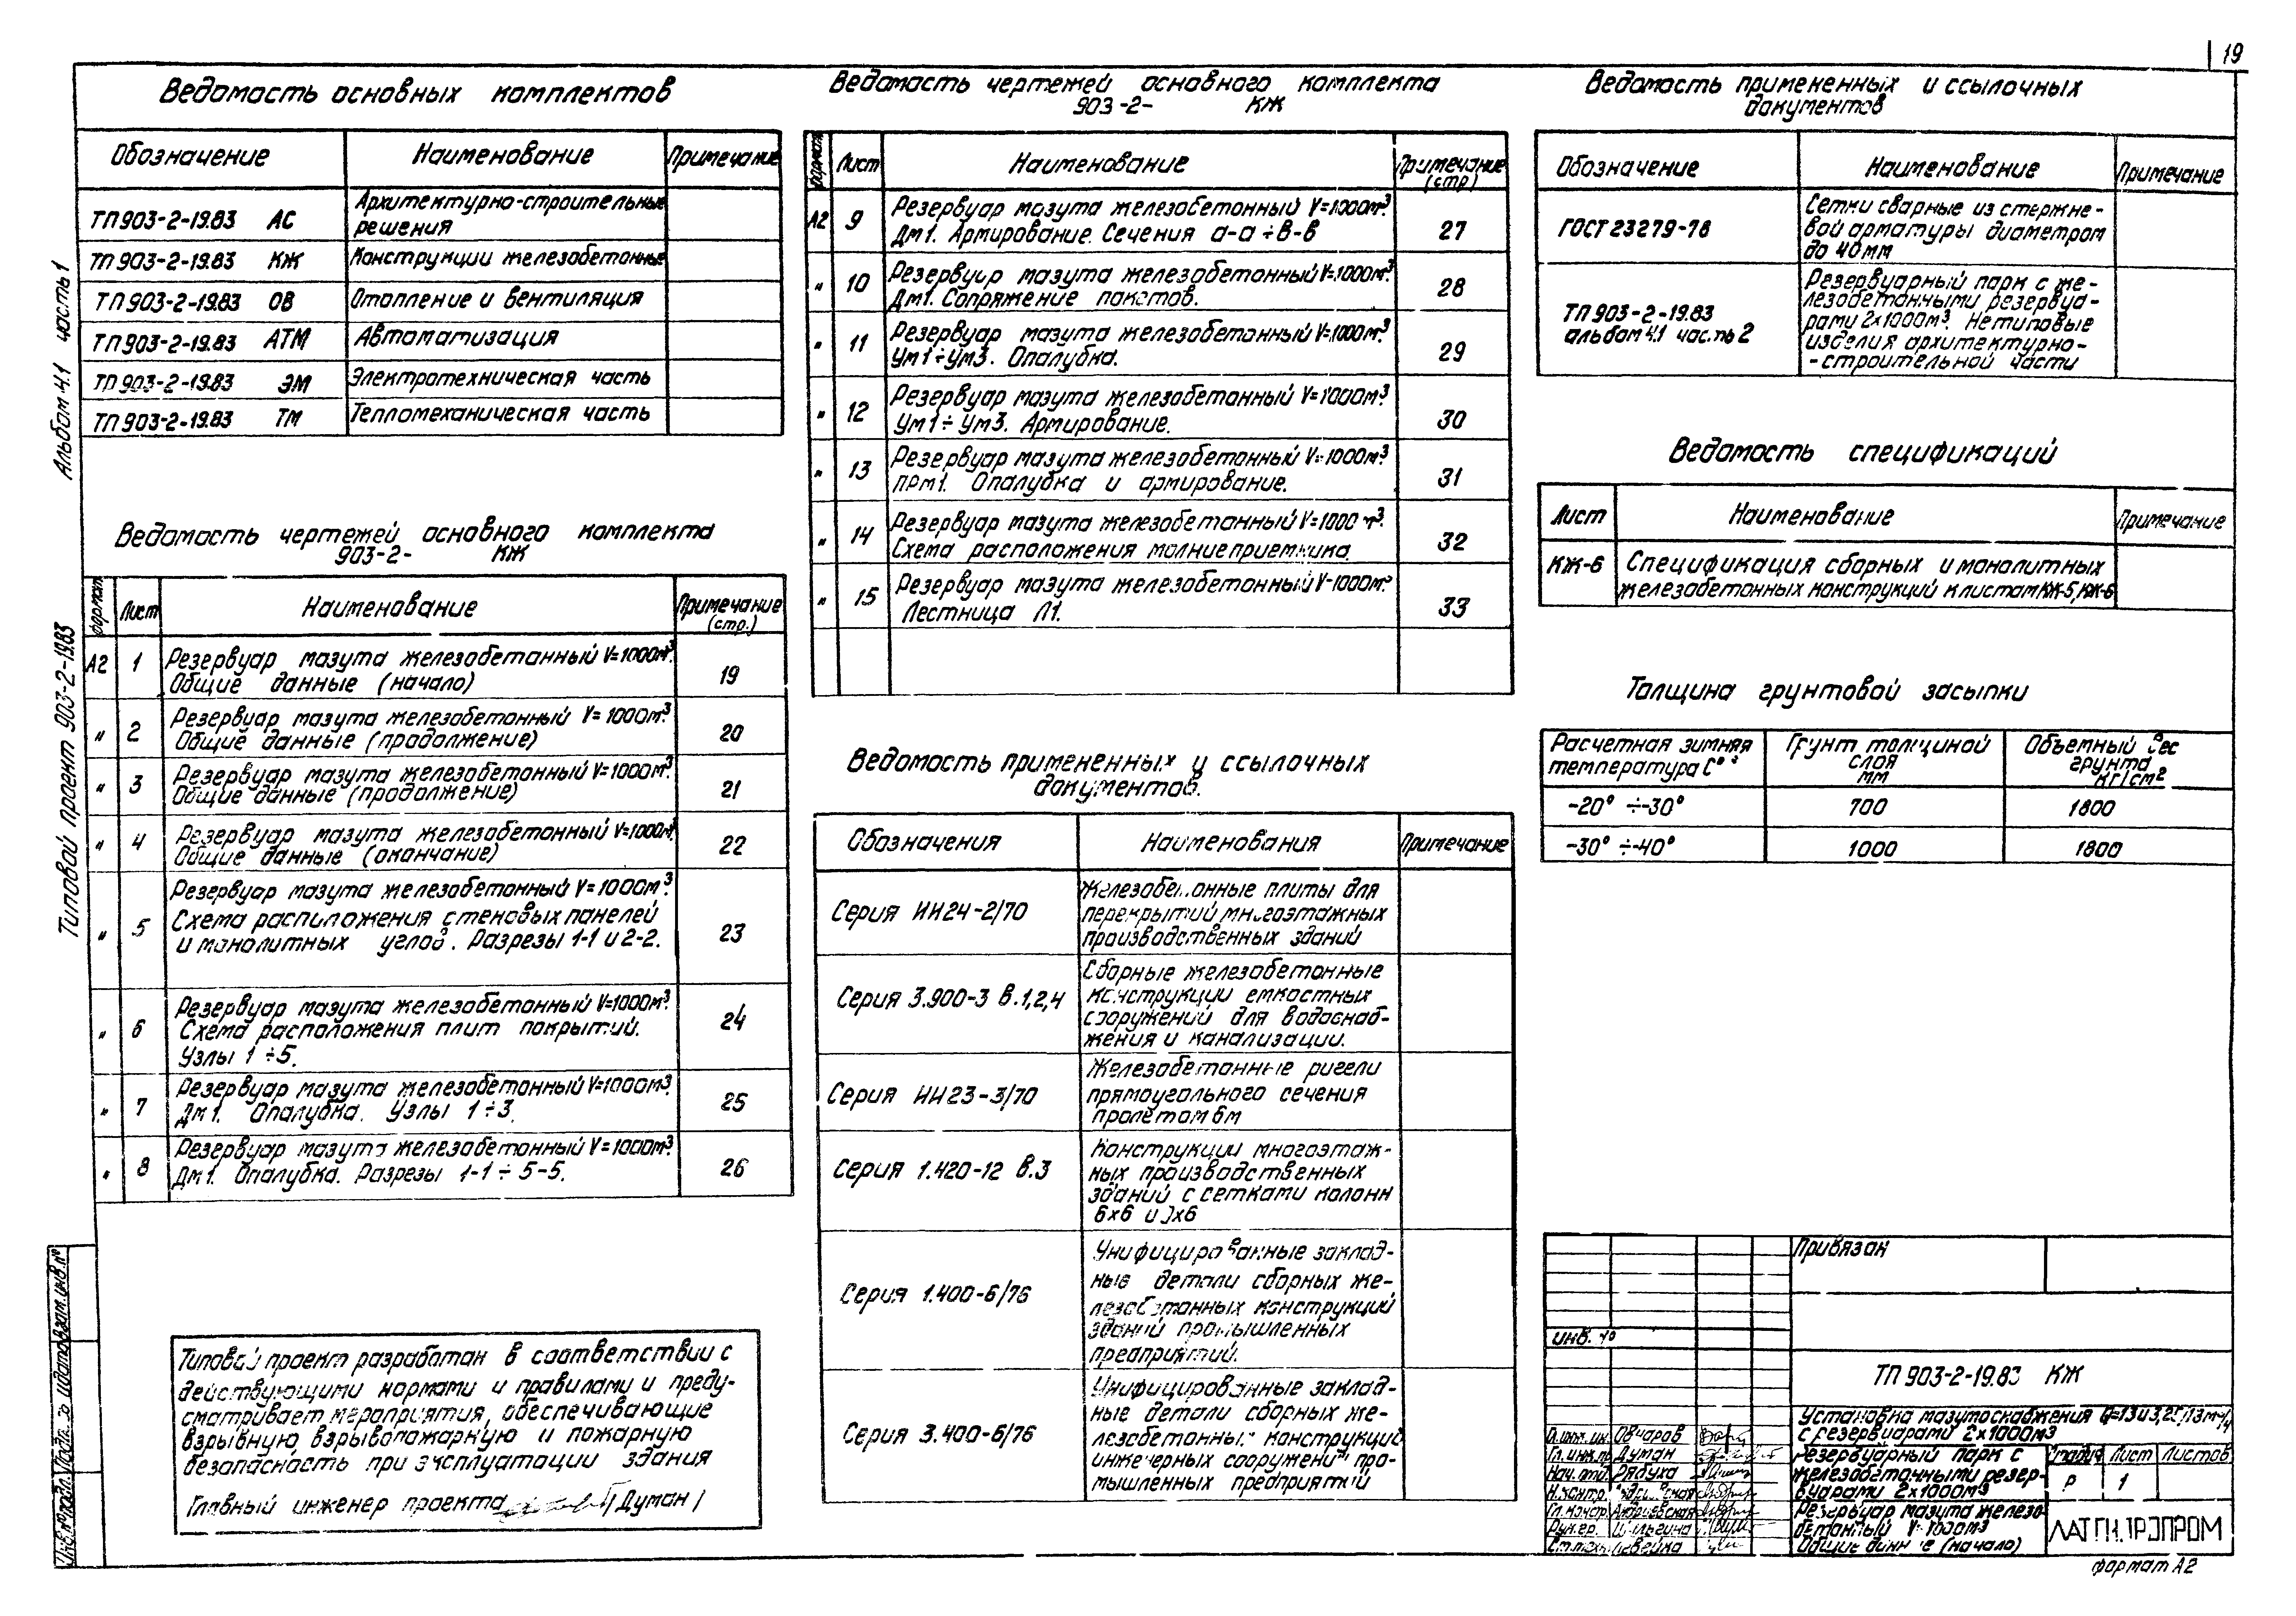 19
Альбом 4.1 часть 1
Типовой проект 903-2-19.83
Ведомость основных комплектов
Обозначение Наименование Примечание
ТП 903-2-19.83 АС Архитектурно-строительные
решения
ТП 903-2-19.83 КЖ Конструкции железобетонные
ТП 903-2-19.83 ОВ Отопление и вентиляция
ТП 903-2-19.83 АТМ Автоматизация
ТП 903-2-19.83 ЭМ Электротехническая часть
ТП 903-2-19.83 ТМ Тепломеханическая часть
Ведомость чертежей основного комплекта
903-2- КЖ
формат Лист Наименование Примечание
(стр.)
А2 1 Резервуар мазута железобетонный V=1000м³.
Общие данные (начало) 19
" 2 Резервуар мазута железобетонный V=1000м³.
Общие данные (продолжение) 20
" 3 Резервуар мазута железобетонный V=1000м³.
Общие данные (продолжение) 21
" 4 Резервуар мазута железобетонный V=1000м³.
Общие данные (окончание) 22
" 5 Резервуар мазута железобетонный V=1000м³.
Схема расположения стеновых панелей
и монолитных углов. Разрезы 1-1 и 2-2. 23
" 6 Резервуар мазута железобетонный V=1000м³.
Схема расположения плит покрытий.
Узлы 1÷5. 24
" 7 Резервуар мазута железобетонный V=1000м³.
Дм1. Опалубка. Узлы 1÷3. 25
" 8 Резервуар мазута железобетонный V=1000м³.
Дм1. Опалубка. Разрезы 1-1÷5-5. 26
Типовой проект разработан в соответствии с
действующими нормами и правилами и преду-
сматривает мероприятия, обеспечивающие
взрывную, взрывопожарную и пожарную
безопасность при эксплуатации здания
Главный инженер проекта /Думан/
Ведомость чертежей основного комплекта
903-2- КЖ
формат Лист Наименование Примечание
(стр)
А2 9 Резервуар мазута железобетонный V=1000м³.
Дм1. Армирование. Сечения а-а÷в-в 27
" 10 Резервуар мазута железобетонный V=1000м³.
Дм1. Сопряжение пакетов. 28
" 11 Резервуар мазута железобетонный V=1000м³.
Ум1÷Ум3. Опалубка. 29
" 12 Резервуар мазута железобетонный V=1000м³.
Ум1÷Ум3. Армирование. 30
" 13 Резервуар мазута железобетонный V=1000м³.
ПРм1. Опалубка и армирование. 31
" 14 Резервуар мазута железобетонный V=1000м³.
Схема расположения молниеприемника 32
" 15 Резервуар мазута железобетонный V=1000м³
Лестница Л1. 33
Ведомость примененных и ссылочных
документов.
Обозначения Наименования Примечание
Серия ИИ24-2/70 Железобетонные плиты для
перекрытий многоэтажных
производственных зданий
Серия 3.900-3 в.1,2,4 Сборные железобетонные
конструкции емкостных
сооружений для водоснаб-
жения и канализации.
Серия ИИ23-3/70 Железобетонные ригели
прямоугольного сечения
пролетом 6м
Серия 1.420-12 в.3 Конструкции многоэтаж-
ных производственных
зданий с сетками колонн
6х6 и х6
Серия 1.400-6/76 Унифицированные заклад-
ные детали сборных же-
лезобетонных конструкций
зданий промышленных
предприятий.
Серия 3.400-6/76 Унифицированные заклад-
ные детали сборных же-
лезобетонных конструкций
инженерных сооружений про-
мышленных предприятий
Ведомость примененных и ссылочных
документов
Обозначение Наименование Примечание
ГОСТ 23279-78 Сетки сварные из стержне-
вой арматуры диаметром
до 40мм
ТП 903-2-19.83
альбом 4.1 часть 2 Резервуарный парк с же-
лезобетонными резервуа-
рами 2х1000м³. Нетиповые
изделия архитектурно-
-строительной части
Ведомость спецификаций
Лист Наименование Примечание
КЖ-6 Спецификация сборных и монолитных
железобетонных конструкций к листам КЖ-5, КЖ-6
Толщина грунтовой засыпки
Расчетная зимняя
температура С° Грунт толщиной
слоя
мм Объемный вес
грунта
кг/см²
-20° ÷-30° 700 1800
-30° ÷-40° 1000 1800
Привязан
инв. №
ТП 903-2-19.83 КЖ
Установка мазутоснабжения
с резервуарами 2х1000м³
Резервуарный парк с
железобетонными резер-
вуарами 2х1000м³
Стадия Лист Листов
Р 1
Резервуар мазута железо-
бетонный V=1000м³
Общие данные (начало)
ЛАТГИПРОПРОМ
Гл. инж. пр. Думан
Нач. отд. Рябуха
Н. контр.
Гл. констр. Андриевская
Рук. гр.
Инв. № подл. Подп. и дата Взам. инв. №
формат А2